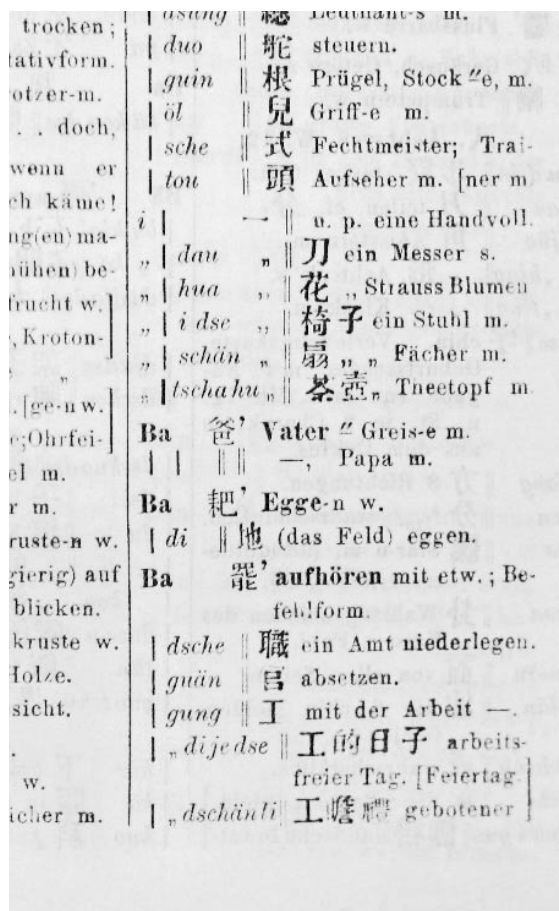 trocken ;
tativform.
otzer-m.
. . doch,
wenn er
ch käme!
ng(en) ma-
ühen) be-
frucht w.
, Kroton-
„
. [ge-n w.
e;Ohrfei-
el m.
r m.
ruste-n w.
gierig) auf
blicken.
kruste w.
Holze.
sicht.
w.
icher m.
| dsung ‖ 總 Leutnant-s m.
| duo ‖ 舵 steuern.
| guin ‖ 根 Prügel, Stock ″e, m.
| öl ‖ 兒 Griff-e m.
| sche ‖ 式 Fechtmeister; Trai-
| tou ‖ 頭 Aufseher m. [ner m.
i | 一 ‖ u. p. eine Handvoll.
„ | dau „ ‖ 刀 ein Messer s.
„ | hua „ ‖ 花 „ Strauss Blumen
„ | i dse „ ‖ 椅子 ein Stuhl m.
„ | schän „ ‖ 扇 „ „ Fächer m.
„ | tscha hu „ ‖ 茶壺 „ Theetopf m.
Ba 爸’ Vater ″ Greis-e m.
| | ‖ ‖ —, Papa m.
Ba 耙, Egge-n w.
| di ‖ 地 (das Feld) eggen.
Ba 罷’ aufhören mit etw. ; Be-
fehlform.
| dsche ‖ 職 ein Amt niederlegen.
| guän ‖ 官 absetzen.
| gung ‖ 工 mit der Arbeit —.
| „ di je dse ‖ 工的日子 arbeits-
freier Tag. [Feiertag.
| „ dschänli ‖ 工瞻禮 gebotener